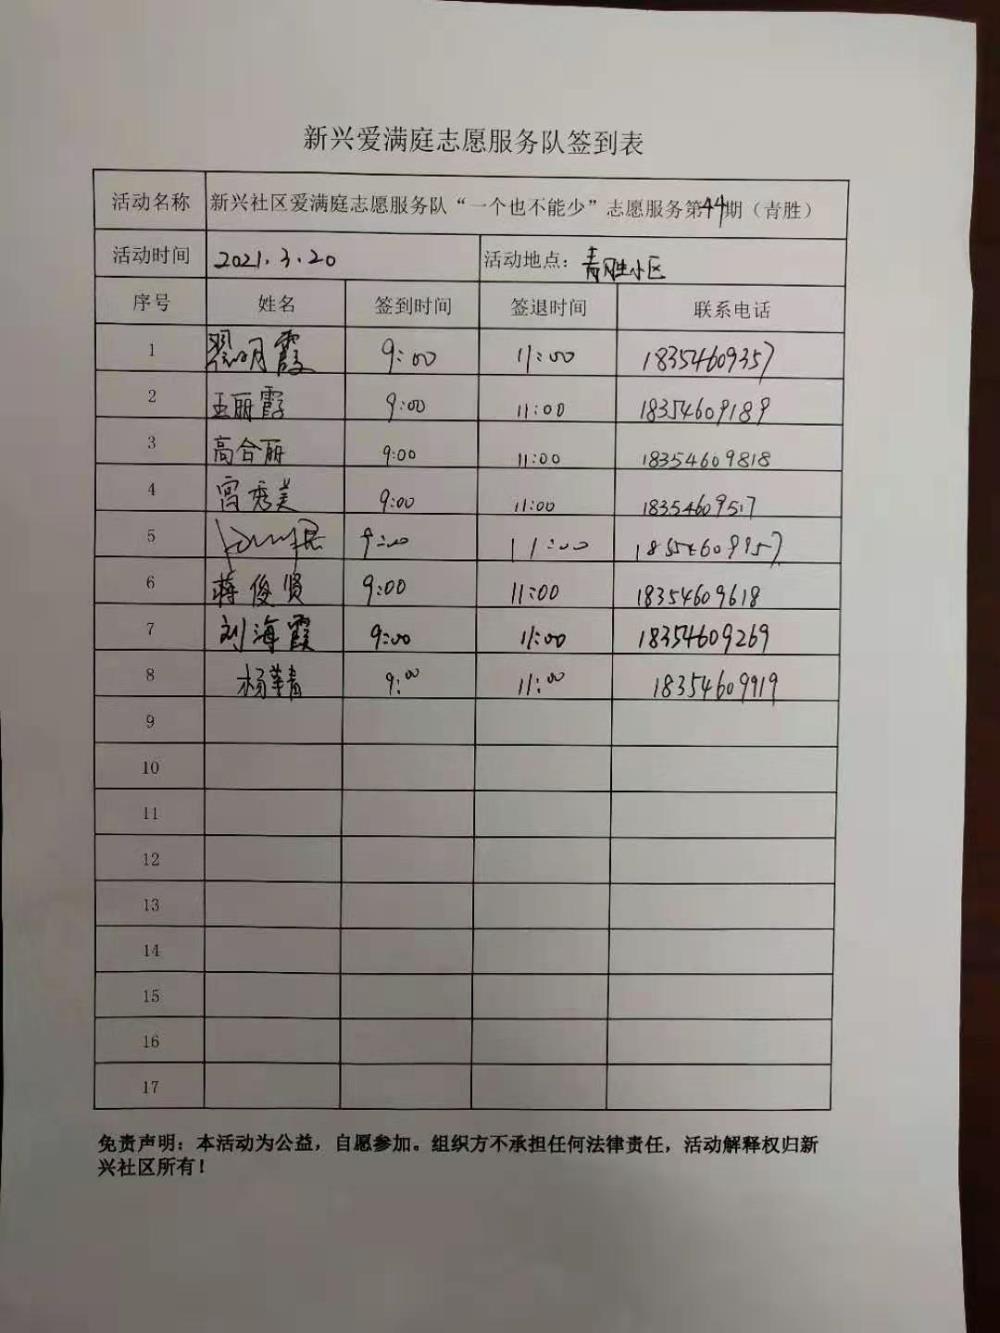 新兴爱满庭志愿服务队签到表
活动名称 新兴社区爱满庭志愿服务队“一个也不能少”志愿服务第44期（青胜）
活动时间 2021.3.20 活动地点：青胜小区
序号 姓名 签到时间 签退时间 联系电话
1 明霞 9:00 11:00 18354609357
2 王丽霞 9:00 11:00 18354609189
3 高合丽 9:00 11:00 18354609818
4 宫秀美 9:00 11:00 18354609517
5 9:00 11:00
6 蒋俊贤 9:00 11:00 18354609618
7 刘海霞 9:00 11:00 18354609269
8 杨菁 9:00 11:00 18354609919
9
10
11
12
13
14
15
16
17
免责声明：本活动为公益，自愿参加。组织方不承担任何法律责任，活动解释权归新
兴社区所有！